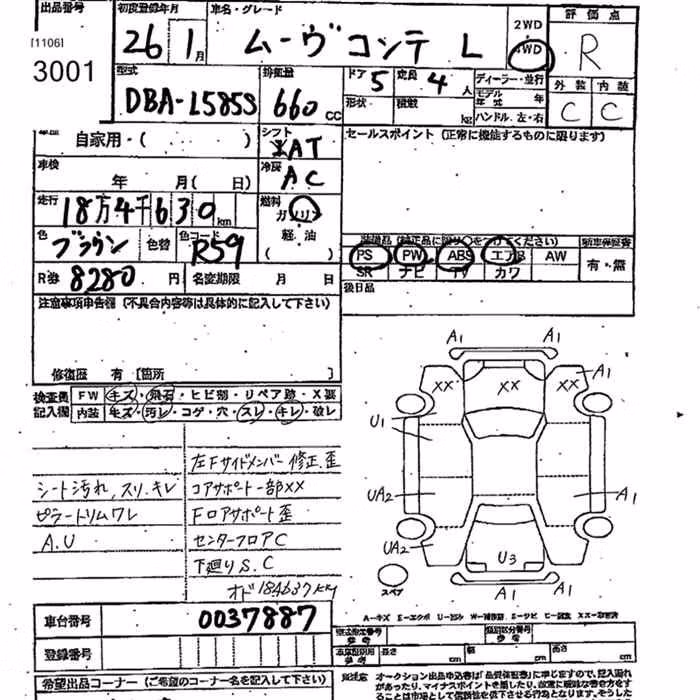 出品番号
[1106]
3001
初度登録年月
26 1月
車名・グレード
ムーヴコンテ L
2WD
4WD
評価点
R
外装 内装
C C
型式
DBA-L585S
排気量
660 CC
ドア 5
定員 4人
形状
積数 kg
ディーラー・並行
モデル年式 年
ハンドル.左・右
自家用・( )
シフト
IAT
セールスポイント (正常に機能するものに限ります)
車検
年 月( 日)
冷房
AC
走行
18万4千630km
燃料
ガソリン
軽・油
( )
色
ブラウン
色替
色コード
R59
装備品 (純正品に限り○をつけてください)
PS PW ABS エアB AW
SR ナビ TV カワ
新車保証書
有・無
R券 8280 円
名変期限 月 日
後日品
注意事項申告欄 (不具合内容等は具体的に記入して下さい)
修復歴 有 [箇所 ]
検査員記入欄
FW キズ・飛石・ヒビ割・リペア跡・X要
内装 キズ・汚レ・コゲ・穴・スレ・キレ・破レ
左Fサイドメンバー修正.歪
シート汚れ,スリ.キレ
コアサポート一部XX
ピラートリムワレ
Fロアサポート歪
A.U
センターフロアC
下廻りS.C
オド184637km
A1
A1
XX XX XX
U1
UA2
A1
UA2
U3
A1 A1
スペア
車台番号 0037887
A-キズ E-エクボ U-凹ル W-補修跡 S-サビ C-腐食 XX-交換済
登録番号
型式指定番号 参考
類別区分番号 参考
長さ cm
幅 cm
高さ cm
希望出品コーナー (ご希望のコーナー名を記入して下さい)
オークション出品申込書は「品質保証書」に準じますので、記入漏れ
があったり、マイナスポイントを隠したり、故意に曖昧な書き方をす
ることは市場として信頼性を低下させる行為となります。そうした